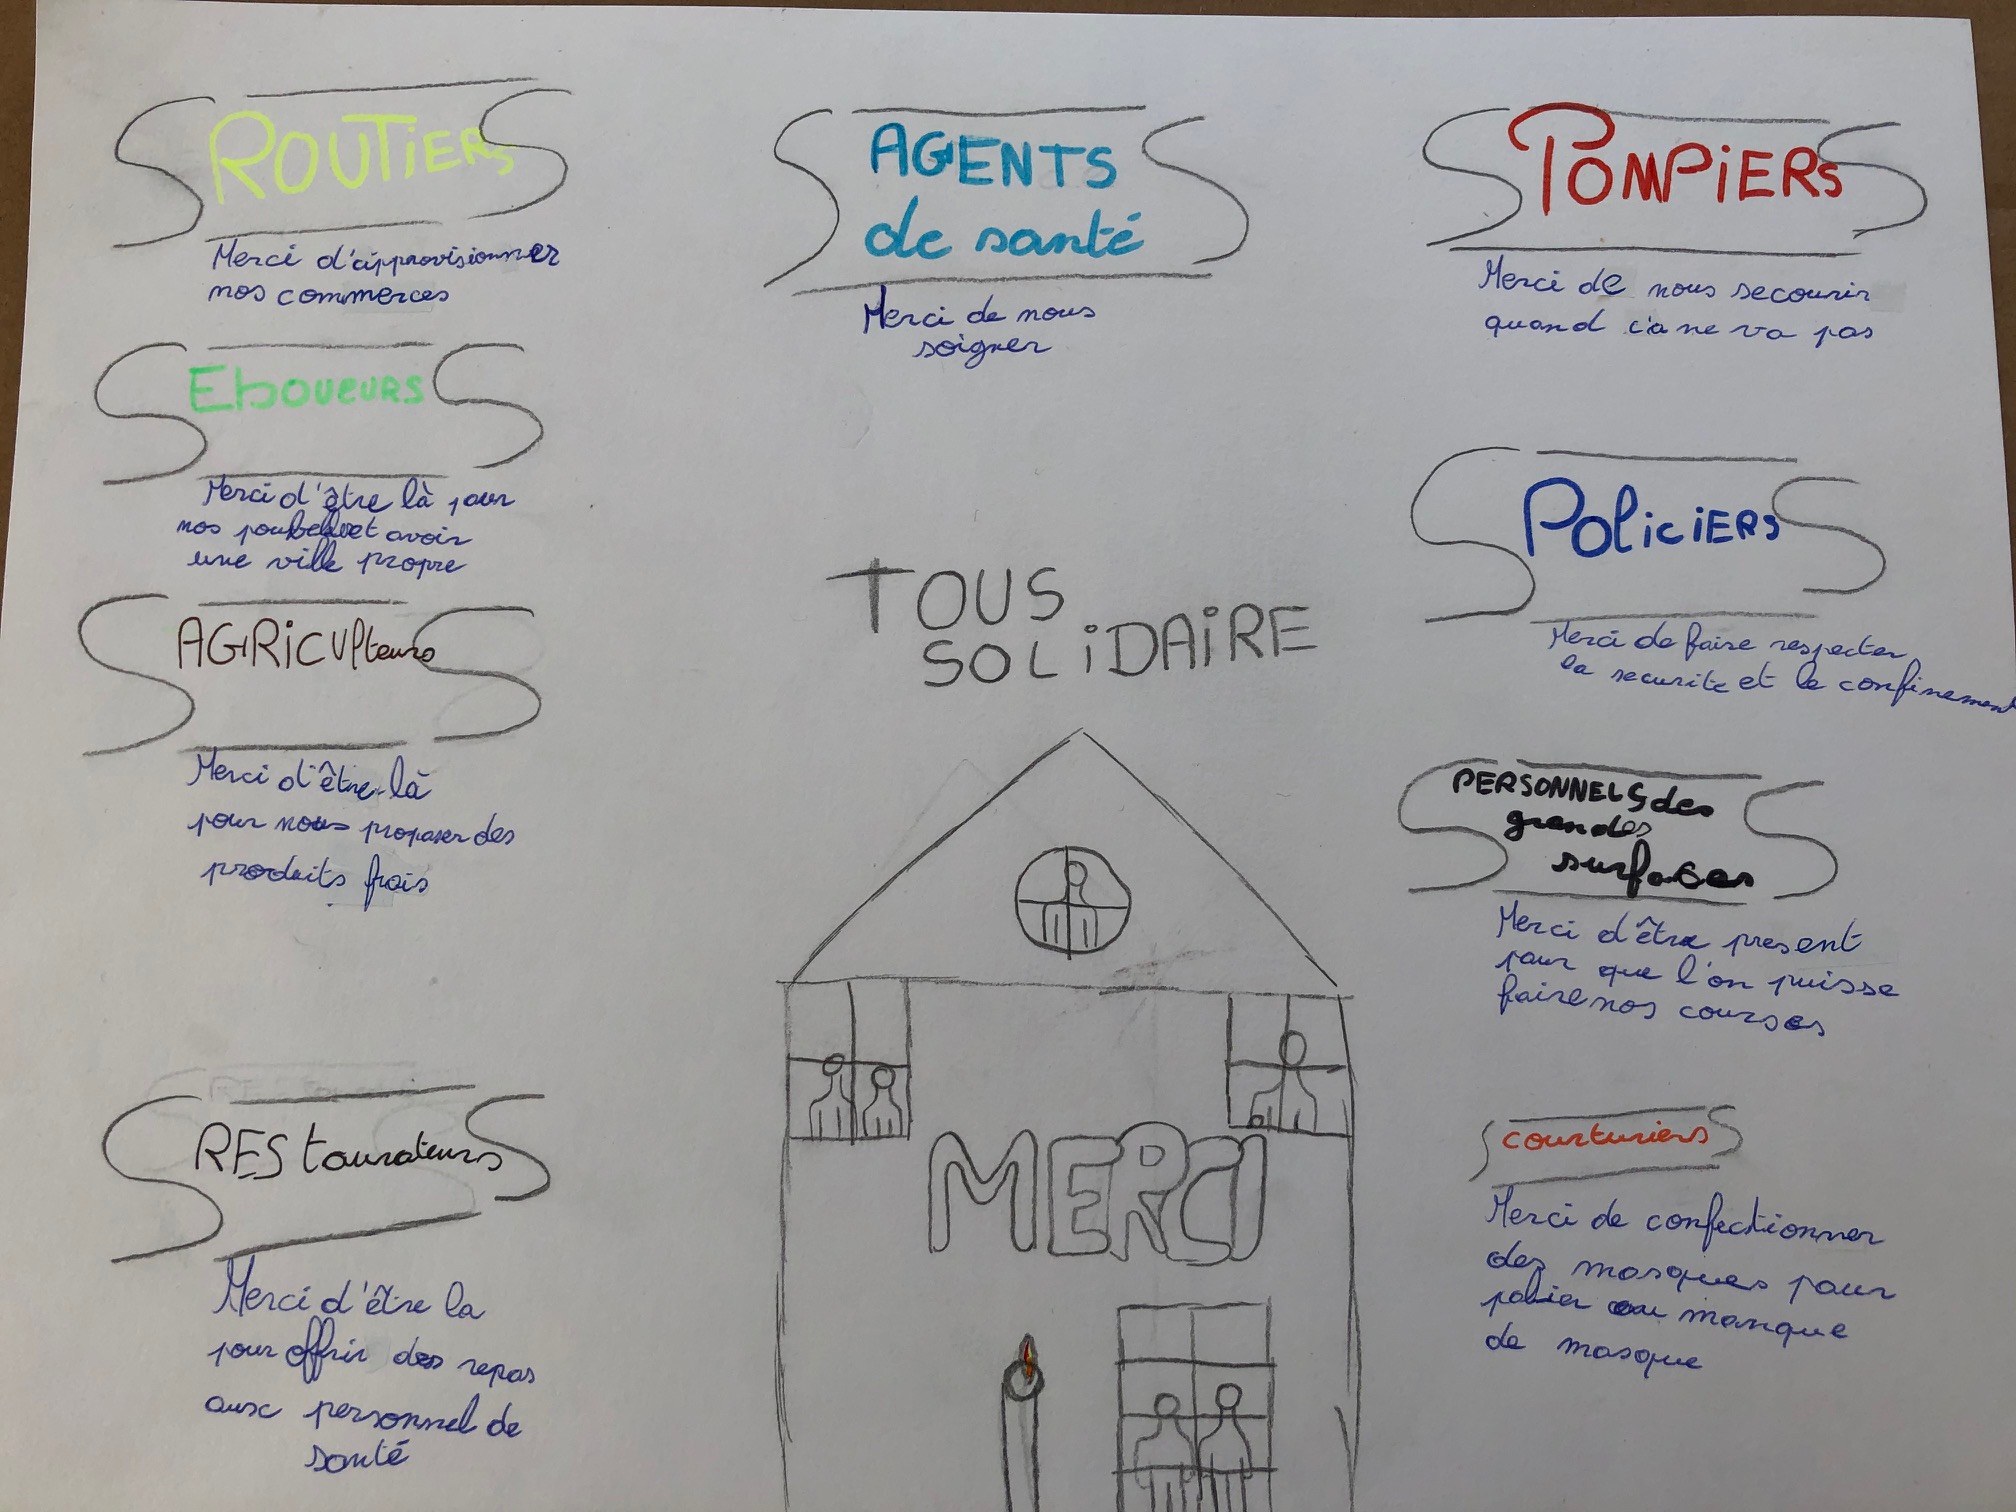 ROUTIERS
Merci d'approvisionner
nos commerces
Eboueurs
Merci d'être là pour
nos poubelles et avoir
une ville propre
AGRICulteurs
Merci d'être là
pour nous proposer des
produits frais
REStaurateurs
Merci d'être la
pour offrir des repas
aux personnel de
santé
AGENTS
de santé
Merci de nous
soigner
TOUS
SOLiDAiRE
MERCI
POMPiERS
Merci de nous secourir
quand c'a ne va pas
PoliciERS
Merci de faire respecter
la securite et le confinement
PERSONNELS des
grandes
surfaces
Merci d'être present
pour que l'on puisse
faire nos courses
courturiers
Merci de confectionner
des masques pour
palier au manque
de masque